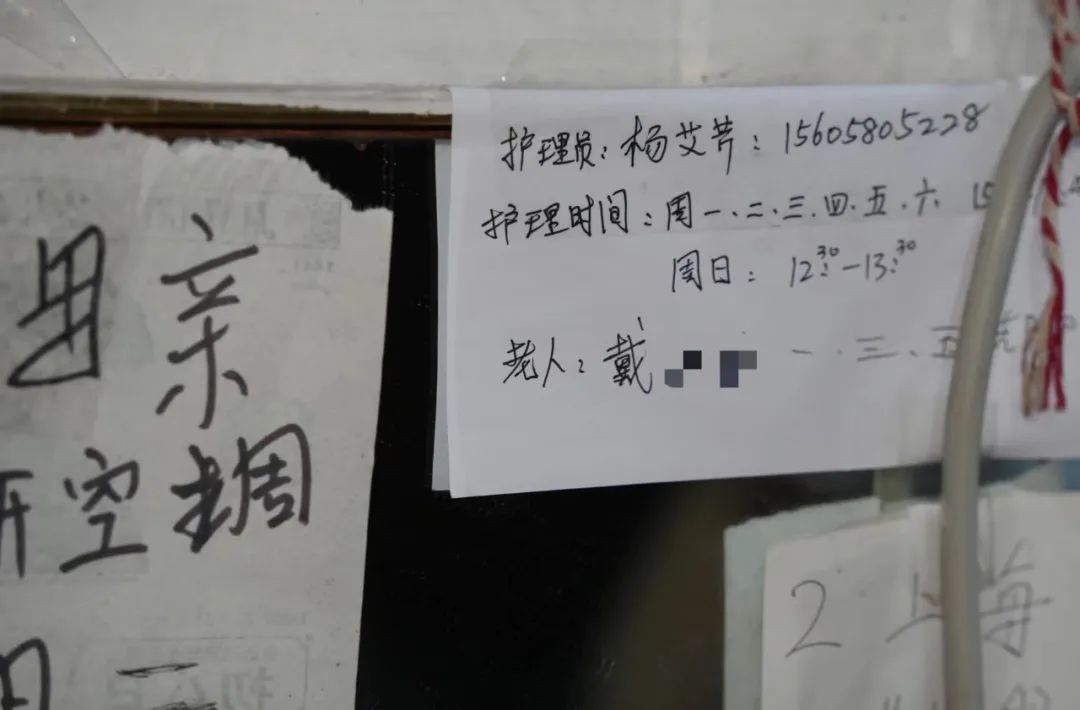 护理员：杨艾芹：15605805228
护理时间：周一.二.三.四.五.六
周日：12:30-13:30
老人：戴
一.三.五
母亲
开空调
2 上海